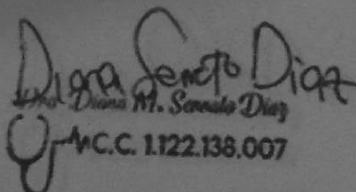 Diana Senoto Diaz
Diana M. Sennoto Diaz
C.C. 1.122.138.007